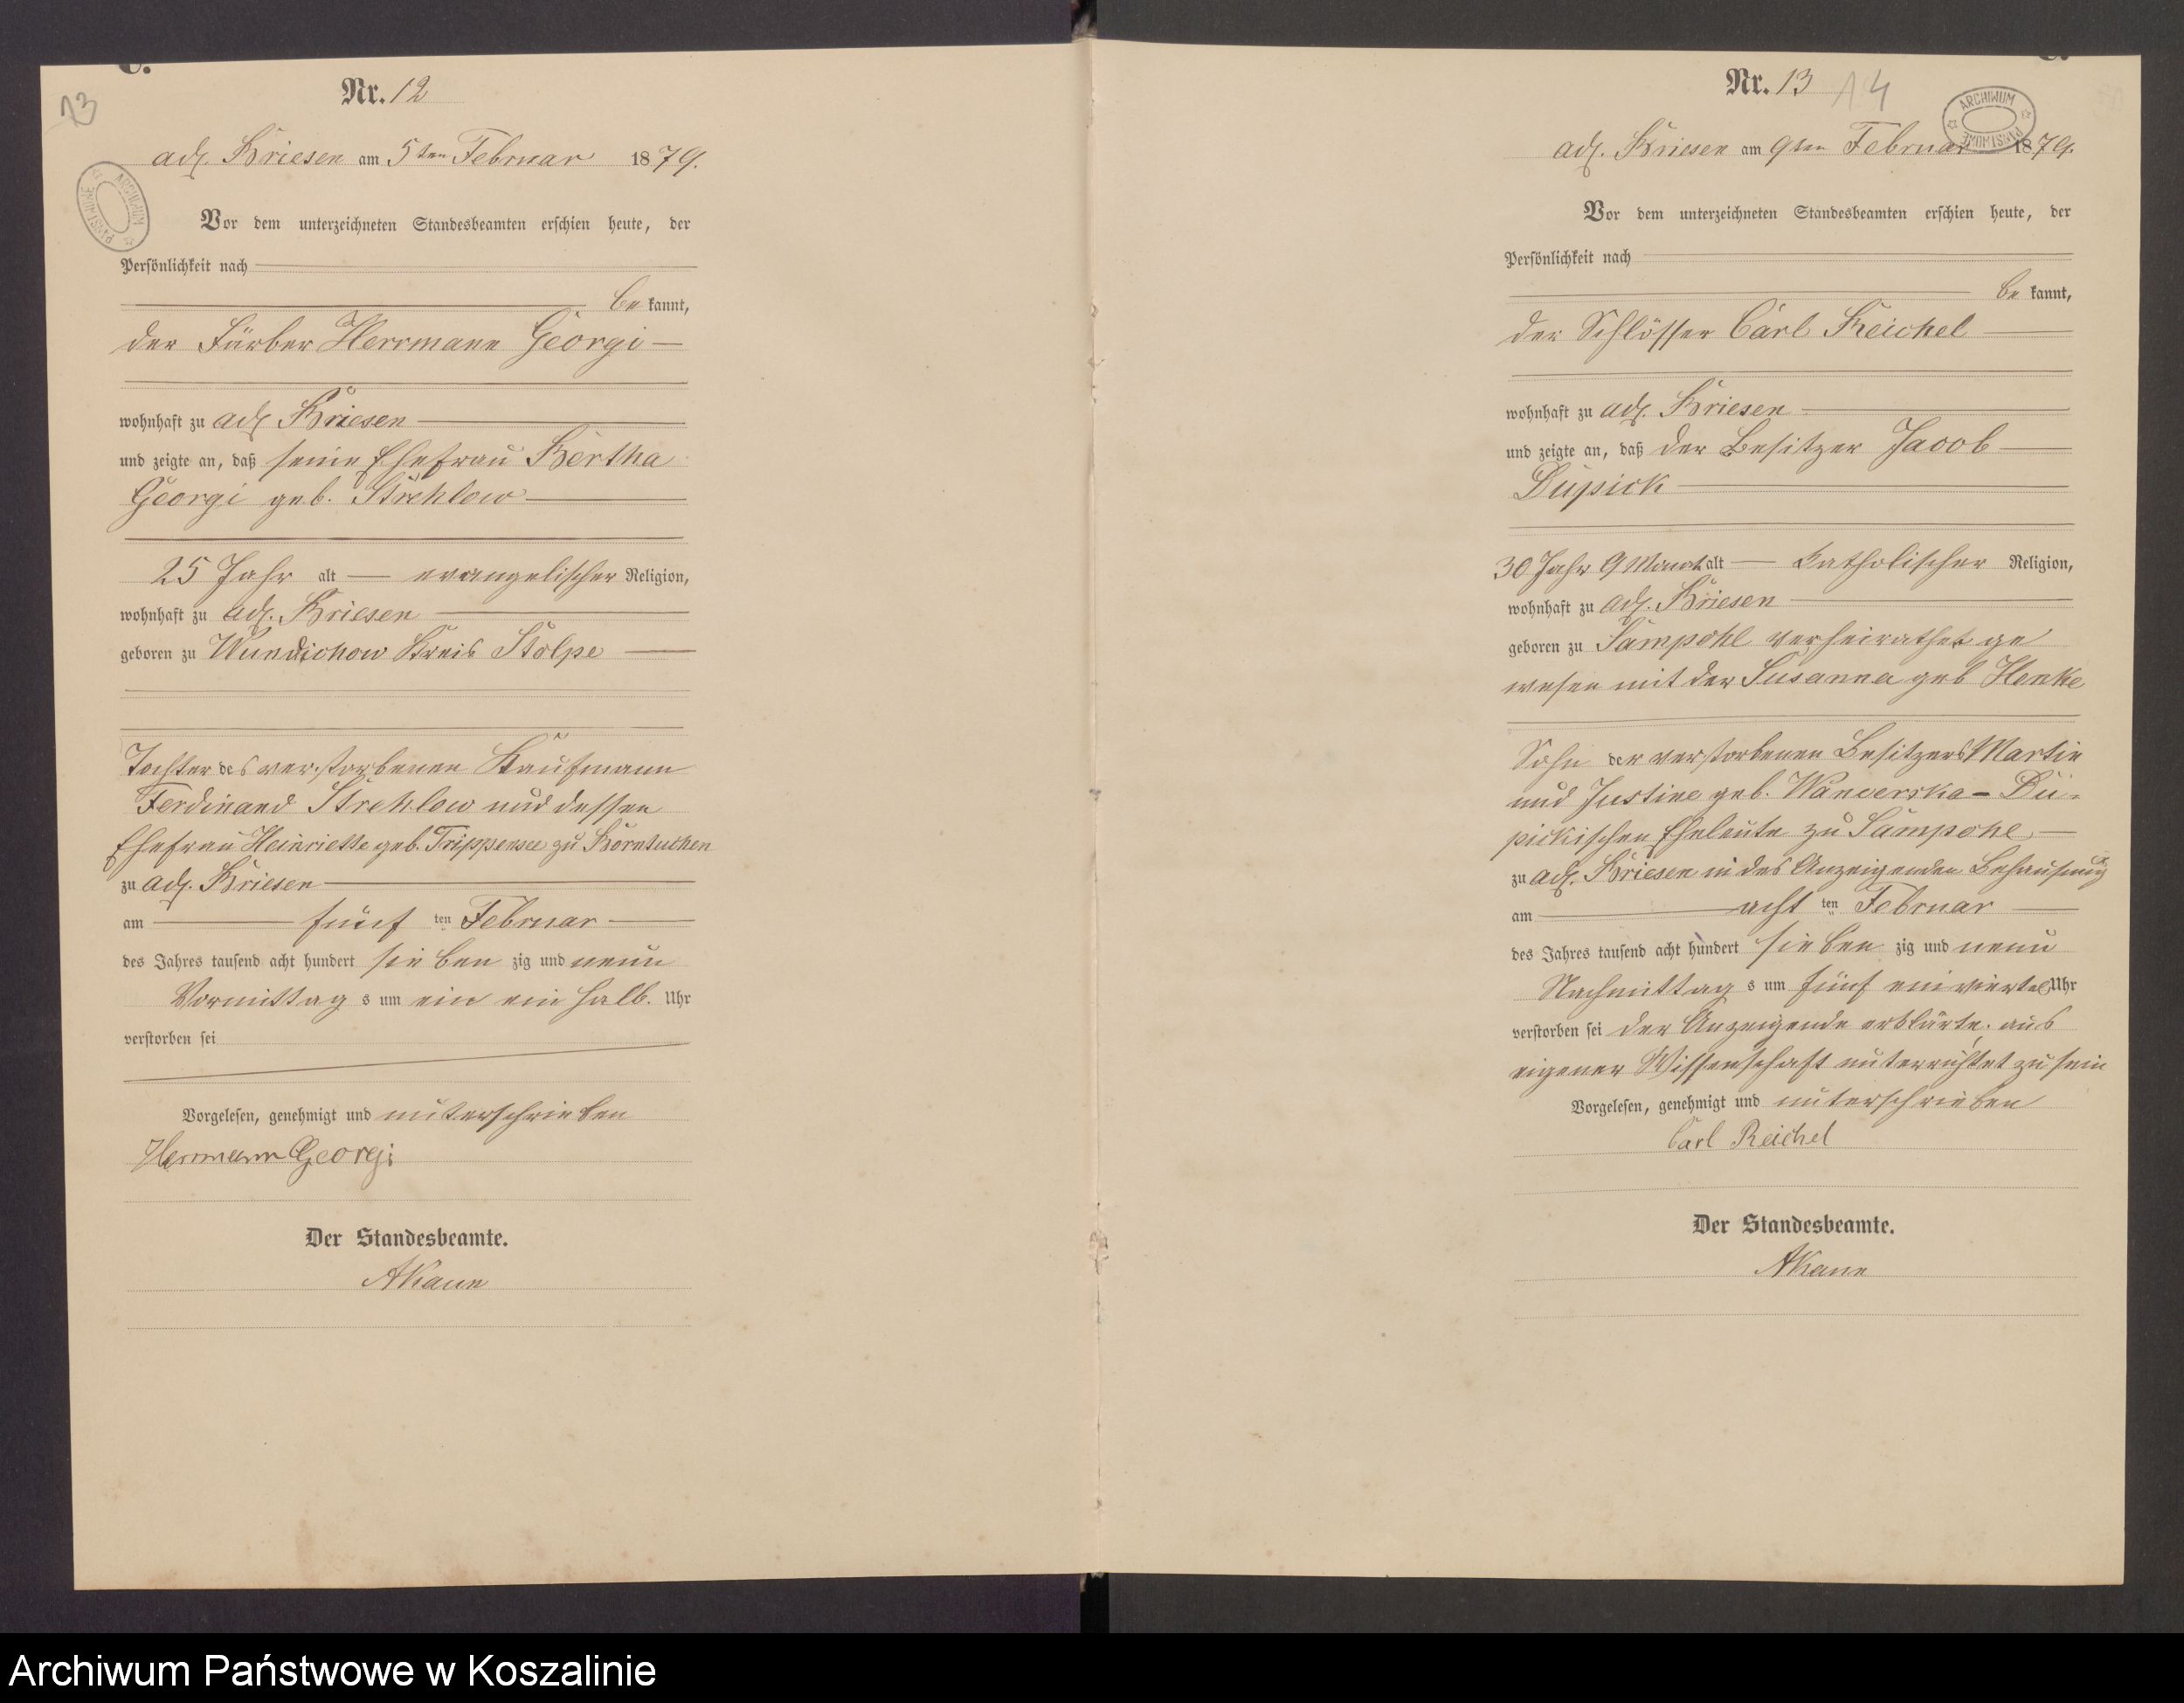 13
Nr. 12
adl. Briesen am 5ten Februar 1879.
ARCHIWUM PAŃSTWOWE
Vor dem unterzeichneten Standesbeamten erschien heute, der
Persönlichkeit nach
be kannt,
der Färber Herrmann Georgi
wohnhaft zu adl. Briesen
und zeigte an, daß seine Ehefrau Bertha
Georgi geb. Strehlow
25 Jahr alt evangelischer Religion,
wohnhaft zu adl. Briesen
geboren zu Wundichow Kreis Stolpe
Tochter des verstorbenen Kaufmann
Ferdinand Strehlow und dessen
Ehefrau Heinriette geb. Trippensee zu Borntuchen
zu adl. Briesen
am fünf ten Februar
des Jahres tausend acht hundert sieben zig und neun
Vormittag s um ein ein halb. Uhr
verstorben sei
Vorgelesen, genehmigt und unterschrieben
Herrmann Georgi
Der Standesbeamte.
AKann
Nr. 13
14
ARCHIWUM PAŃSTWOWE
adl. Briesen am 9ten Februar 1879.
Vor dem unterzeichneten Standesbeamten erschien heute, der
Persönlichkeit nach
be kannt,
der Schlösser Carl Reichel
wohnhaft zu adl. Briesen
und zeigte an, daß der Besitzer Jacob
Dupick
30 Jahr 9 Monat alt Katholischer Religion,
wohnhaft zu adl. Briesen
geboren zu Sampohl verheirathet ge
wesen mit der Susanna geb Henke
Sohn der verstorbenen Besitzers Martin
und Justine geb. Du-
pickischen Eheleute zu Sampohl,
zu adl. Briesen in des Anzeigenden Behausung
am acht ten Februar
des Jahres tausend acht hundert sieben zig und neun
Nachmittag s um fünf ein viertel Uhr
verstorben sei der Anzeigende erklärte, aus
eigener Wissenschaft unterrichtet zu sein
Vorgelesen, genehmigt und unterschrieben
Carl Reichel
Der Standesbeamte.
AKann
Archiwum Państwowe w Koszalinie